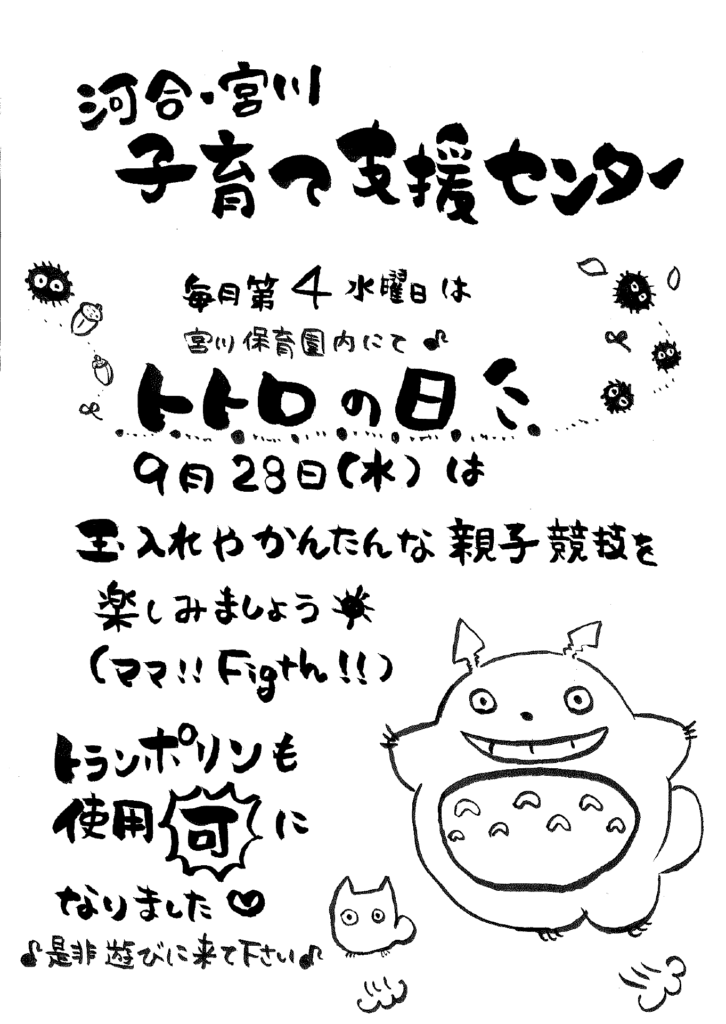 河合・宮川
子育て支援センター
毎月第4水曜日は
宮川保育園内にて♪
トトロの日
9月28日(水)は
玉入れやかんたんな親子競技を
楽しみましょう
(ママ!! Figth!!)
トランポリンも
使用可に
なりました♡
♪是非遊びに来て下さい♪